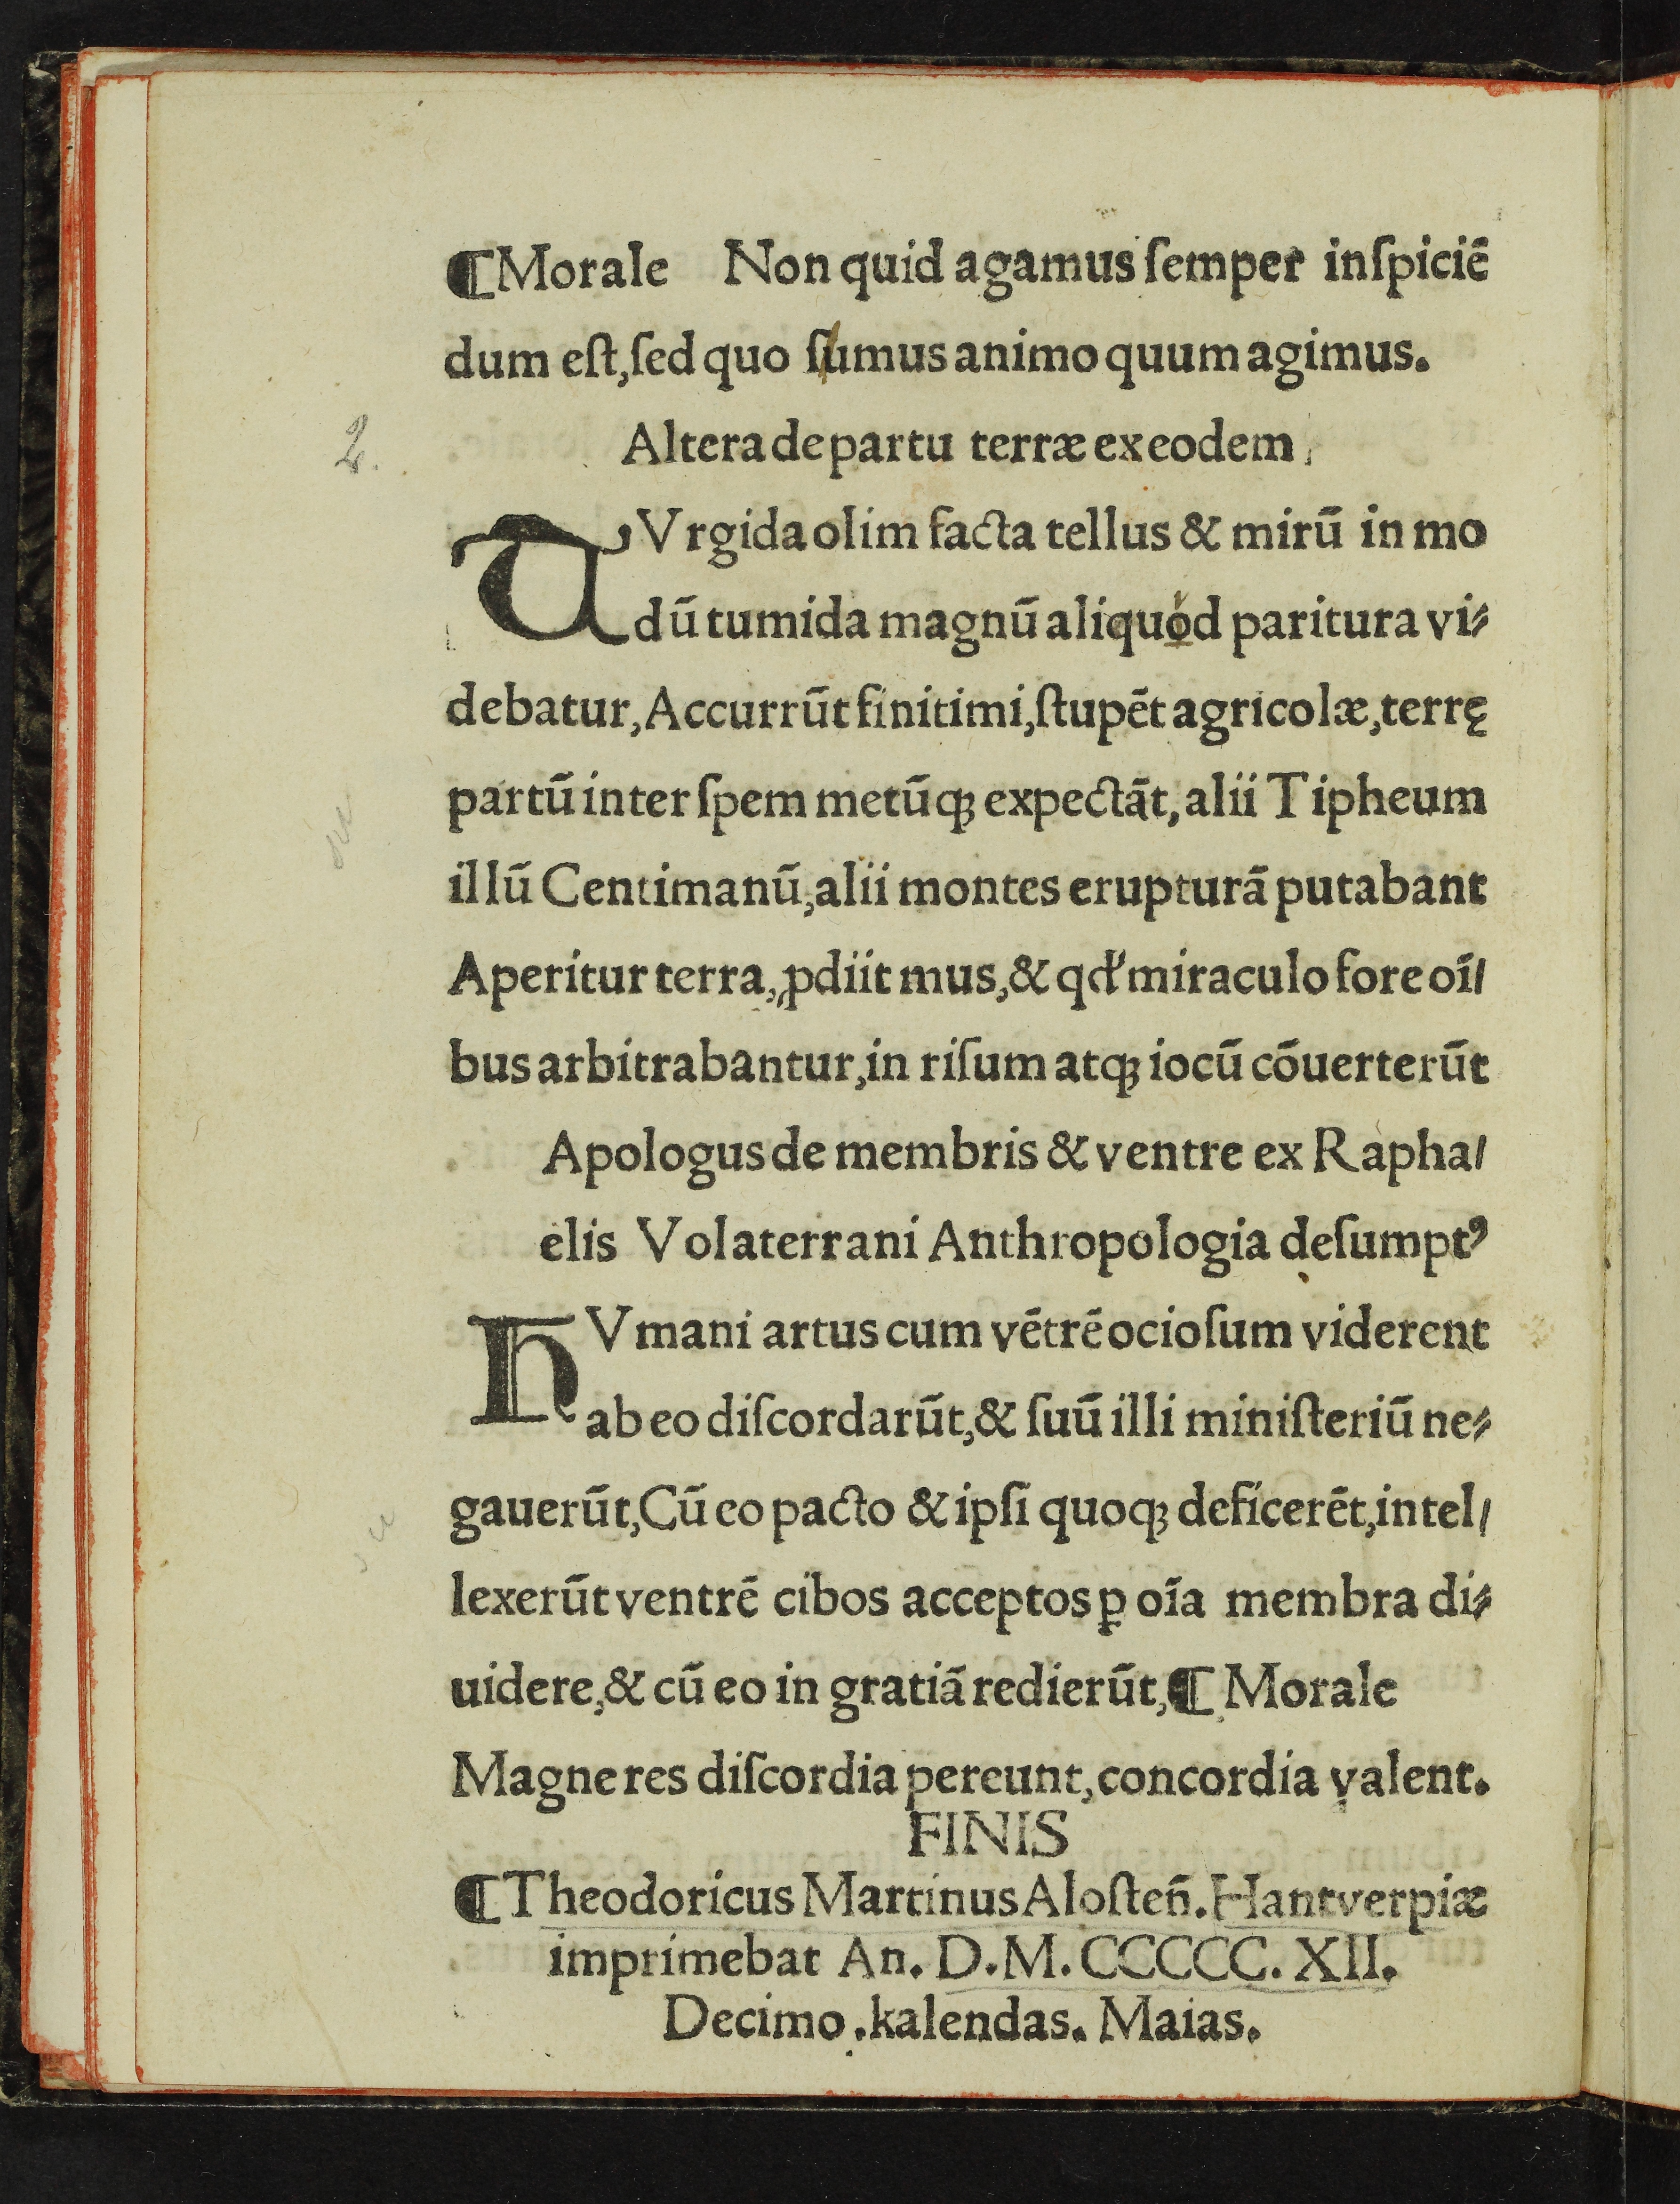 ¶Morale Non quid agamus ſemper inſpiciē
dum eſt, ſed quo ſumus animo quum agimus.
2.
Altera de partu terræ ex eodem,
TVrgida olim facta tellus & mirū in mo
dū tumida magnū aliquod paritura vi⸗
debatur, Accurrūt finitimi, ſtupēt agricolæ, terrę
partū inter ſpem metūqꝫ expectāt, alii Tipheum
illū Centimanū, alii montes erupturā putabant
Aperitur terra, ꝓdiit mus, & qđ miraculo fore oī/
bus arbitrabantur, in riſum atqꝫ iocū cōuerterūt
Apologus de membris & ventre ex Rapha/
elis Volaterrani Anthropologia deſumptꝰ
HVmani artus cum vētrē ocioſum viderent
ab eo diſcordarūt, & ſuū illi miniſteriū ne⸗
gauerūt, Cū eo pacto & ipſi quoqꝫ deficerēt, intel/
lexerūt ventrē cibos acceptos ꝑ oīa membra di⸗
uidere, & cū eo in gratiā redierūt, ¶ Morale
Magne res diſcordia pereunt, concordia valent.
FINIS
¶Theodoricus Martinus Aloſteñ. Hantverpiæ
imprimebat An. D.M.CCCCC.XII.
Decimo.kalendas. Maias.